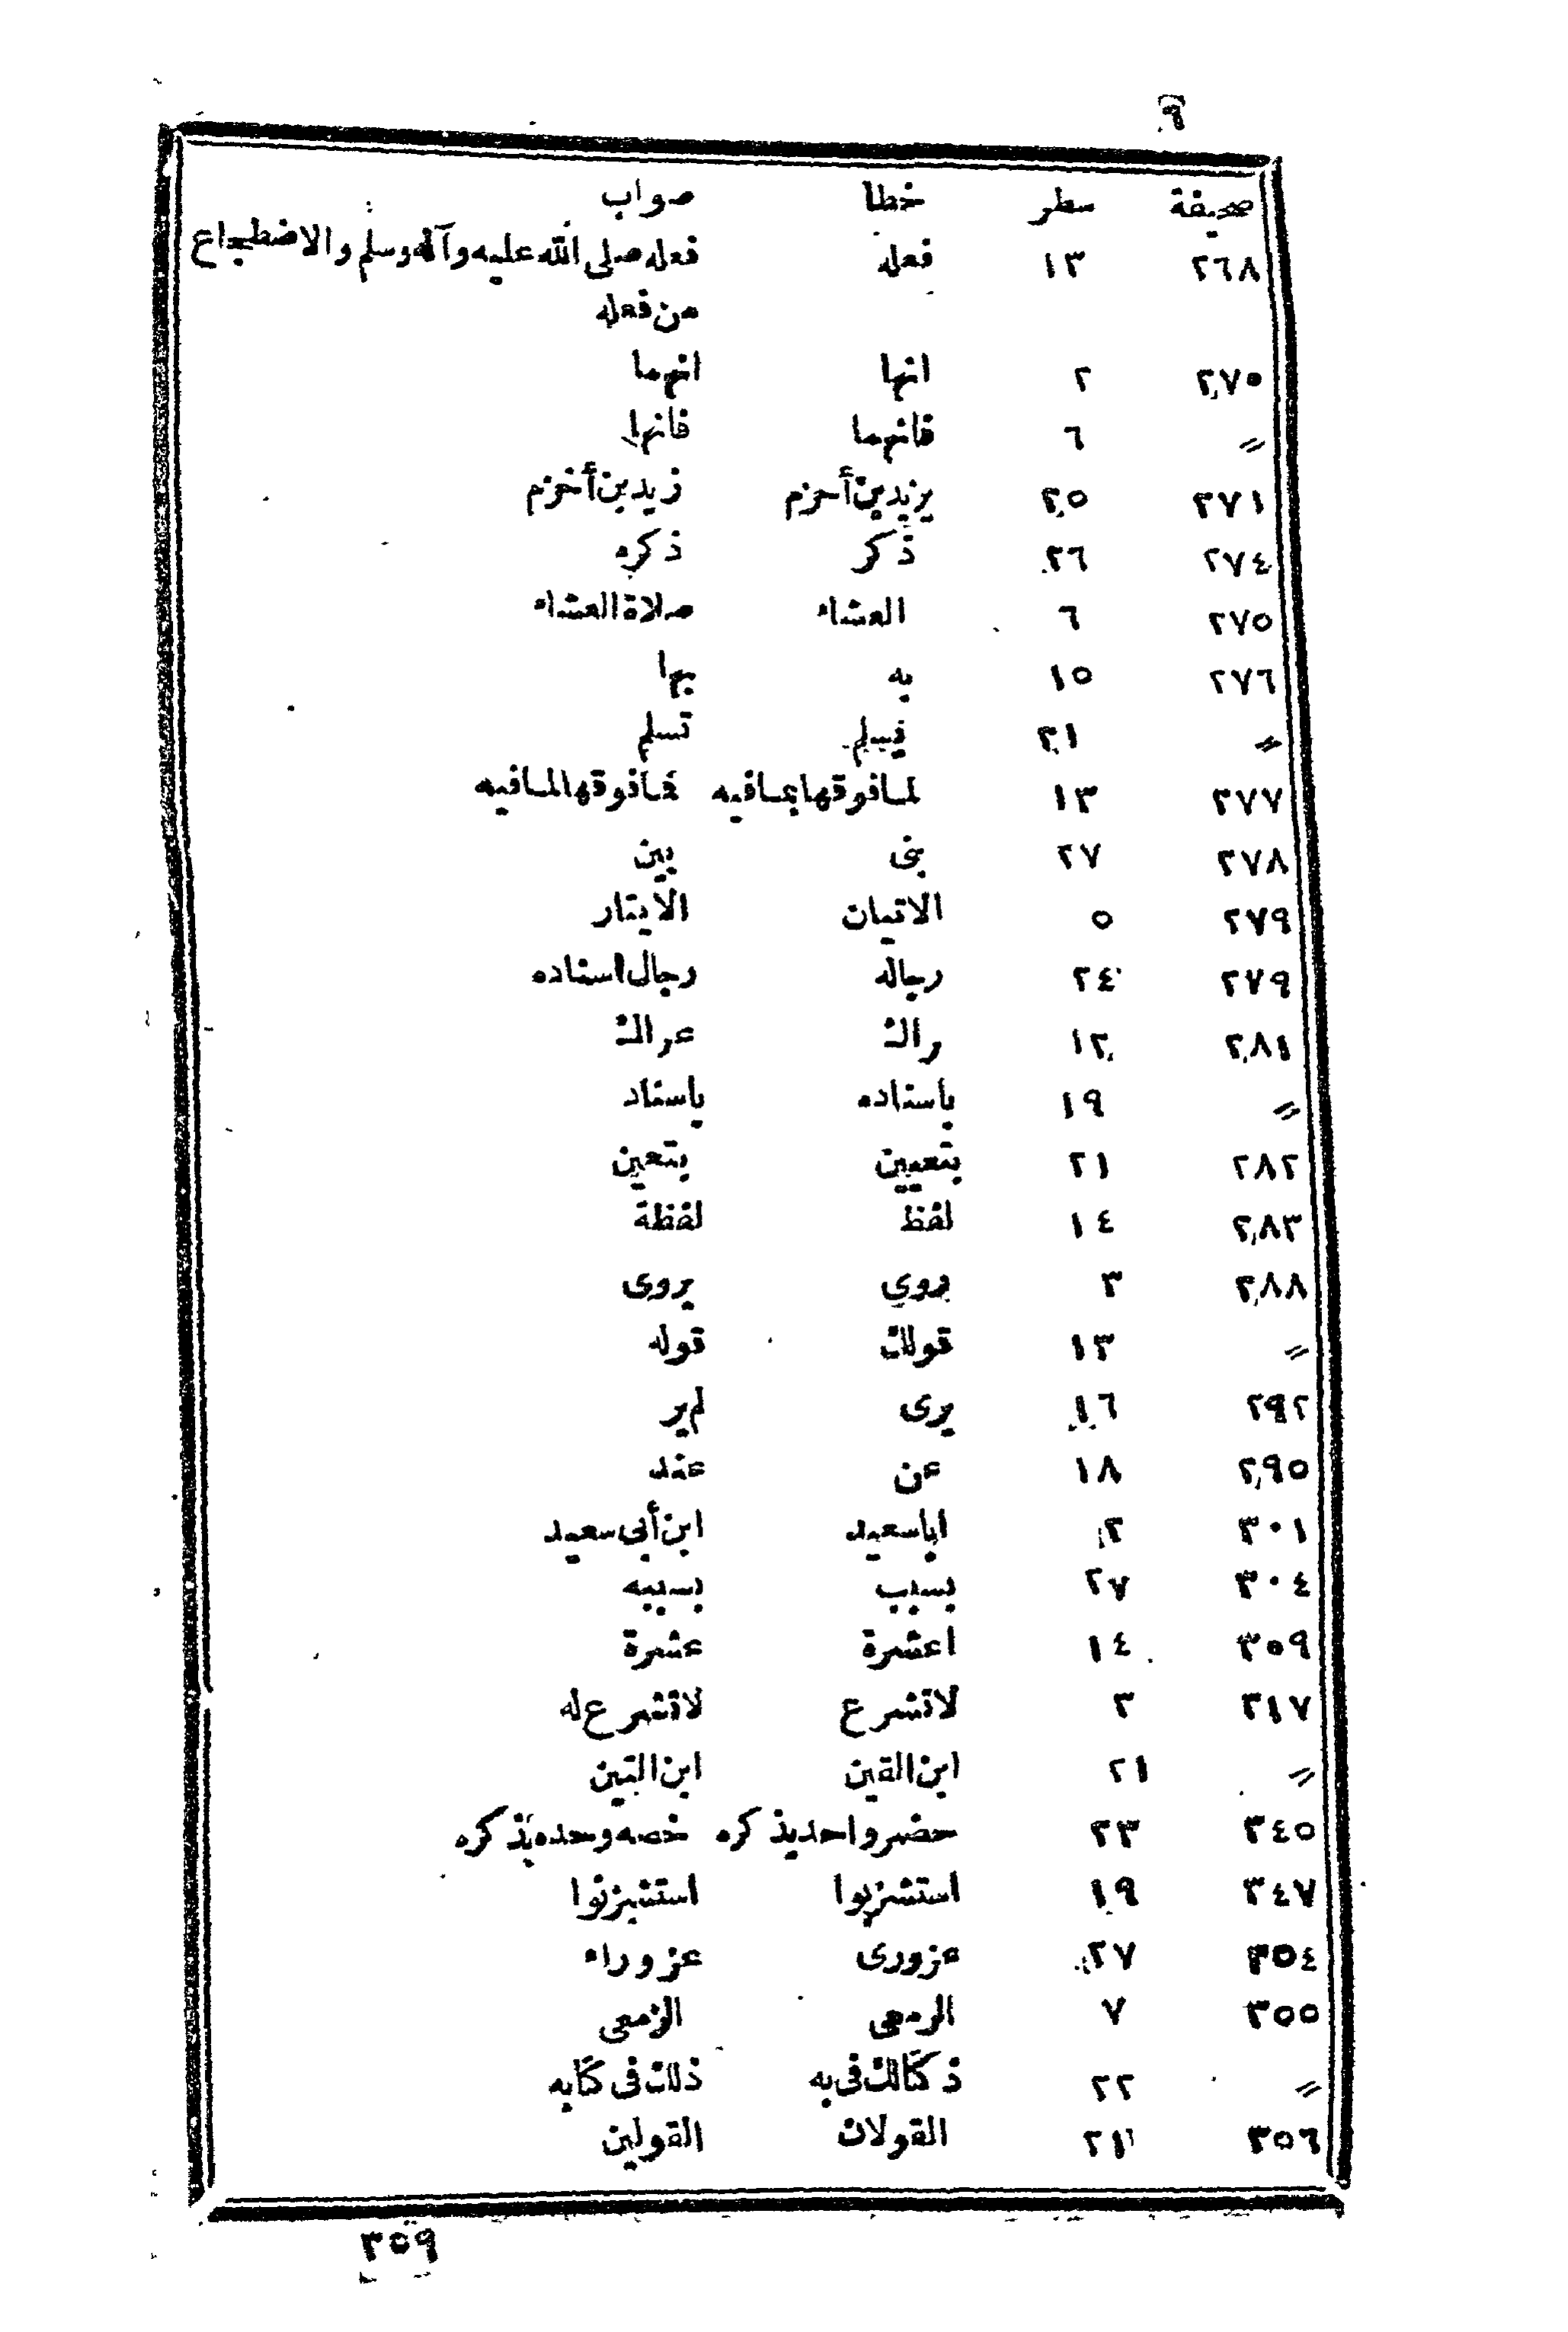 ٩
صحيفة سطر خطا صواب
٢٦٨ ١٣ فعله فعله صلى الله عليه وآله وسلم والاضطجاع
من فعله
٢٧٥ ٢ انها انهما
〃 ٦ فانهما فانها
٢٧١ ٢٥ يزيد بن أحزم زيد بن أخزم
٢٧٤ ٢٦ ذكر ذكره
٢٧٥ ٦ العشاء صلاة العشاء
٢٧٦ ١٥ به بها
〃 ٢١ فيسلم تسلم
٢٧٧ ١٣ لمافوقها بمافيه فمافوقها لمافيه
٢٧٨ ٢٧ بنى بين
٢٧٩ ٥ الاتيان الايتار
٢٧٩ ٢٤ رجاله رجال اسناده
٢٨١ ١٢ راك عراك
〃 ١٩ باسناده باسناد
٢٨٢ ٢١ بتعيين بتعين
٢٨٣ ١٤ لفظ لفظة
٢٨٨ ٣ بروي يروى
〃 ١٣ قولك قوله
٢٩٢ ١٦ يرى لم ير
٢٩٥ ١٨ عن عند
٣٠١ ٢ اباسعيد ابن أبى سعيد
٣٠٤ ٢٧ بسبب بسببه
٣٠٩ ١٤ اعشرة عشرة
٣١٧ ٣ لاتشرع لاتشرع له
〃 ٢١ ابن القين ابن التين
٣٤٥ ٢٣ حضر واحد يذكره خصه وحده بذكره
٣٤٧ ١٩ استشزبوا استشيزنوا
٣٥٤ ٢٧ عزورى عزوراء
٣٥٥ ٧ الرمعى الزمعى
〃 ٢٢ ذكتالك فى به ذلك فى كتابه
٣٥٦ ٢١ القولان القولين
٣٥٩